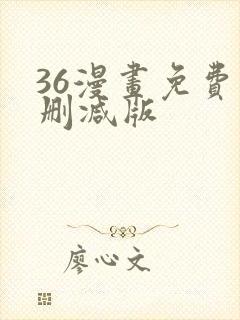 36漫畫免費
刪減版
廖心文